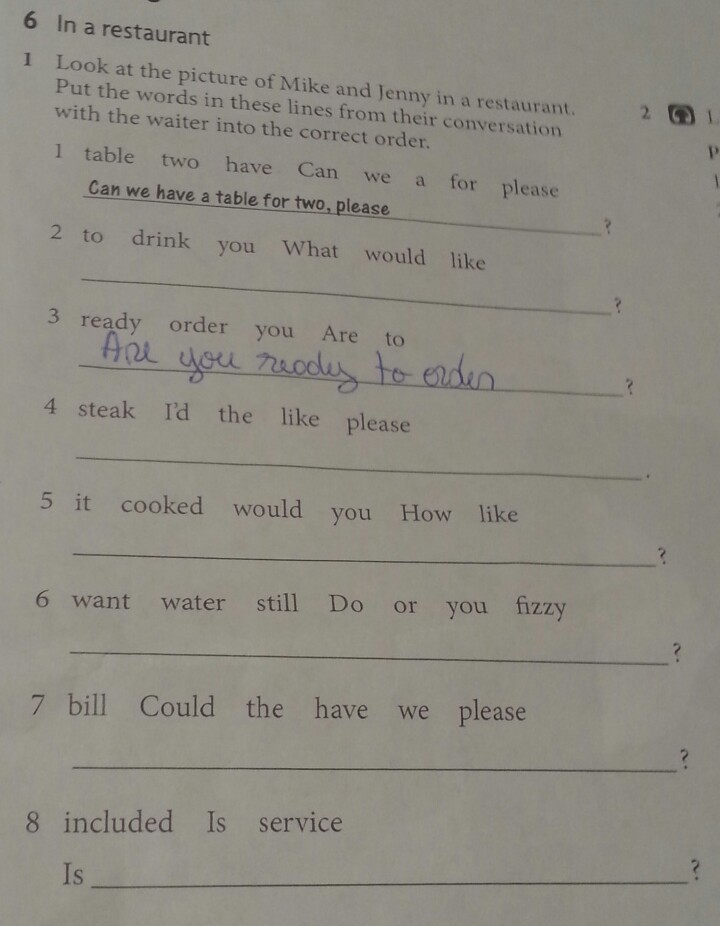 6 In a restaurant
1 Look at the picture of Mike and Jenny in a restaurant.
Put the words in these lines from their conversation
with the waiter into the correct order.
2
1 table two have Can we a for please
Can we have a table for two, please ?
2 to drink you What would like
?
3 ready order you Are to
Are you ready to order ?
4 steak I'd the like please
.
5 it cooked would you How like
?
6 want water still Do or you fizzy
?
7 bill Could the have we please
?
8 included Is service
Is ?